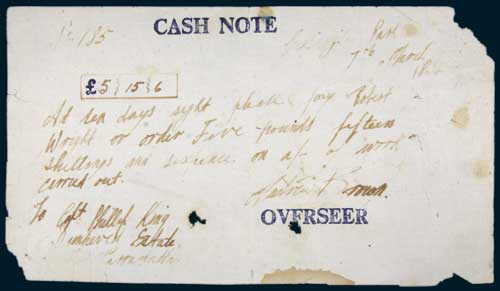 No 185
CASH NOTE
7th March
£5 | 15 | 6
At ten days sight please pay Robert
Wright or order Five pounds fifteen
shillings and sixpence on a/c work
carried out.
OVERSEER
To Capt Phillip King
Estate
Parramatta